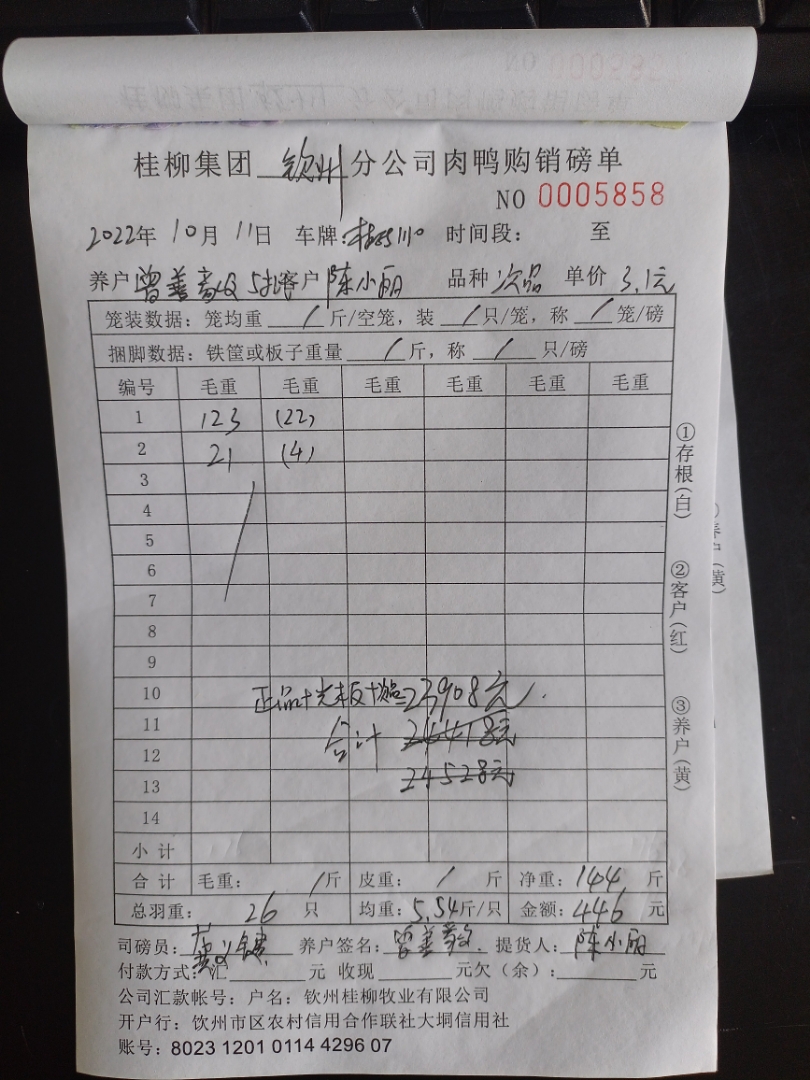 桂柳集团 钦州 分公司肉鸭购销磅单
NO 0005858
2022年 10月 11日 车牌: 时间段: 至
养户 曾善 客户 陈小丽 品种 次品 单价 3.1元
笼装数据: 笼均重 / 斤/空笼, 装 / 只/笼, 称 / 笼/磅
捆脚数据: 铁筐或板子重量 / 斤, 称 / 只/磅
编号 毛重 毛重 毛重 毛重 毛重 毛重
1 123 (22)
2 21 (4)
3
4
5
6
7
8
9
10 正品+光板+次品=23908元.
11 合计 24418元
12
13 24528元
14
小计
合计 毛重: / 斤 皮重: / 斤 净重: 144 斤
总羽重: 26 只 均重: 5.54斤/只 金额: 446 元
司磅员: 养户签名: 曾善 提货人: 陈小丽
付款方式: 汇 元 收现 元欠(余): 元
公司汇款帐号: 户名: 钦州桂柳牧业有限公司
开户行: 钦州市区农村信用合作联社大垌信用社
账号: 8023 1201 0114 4296 07
①存根(白)
②客户(红)
③养户(黄)